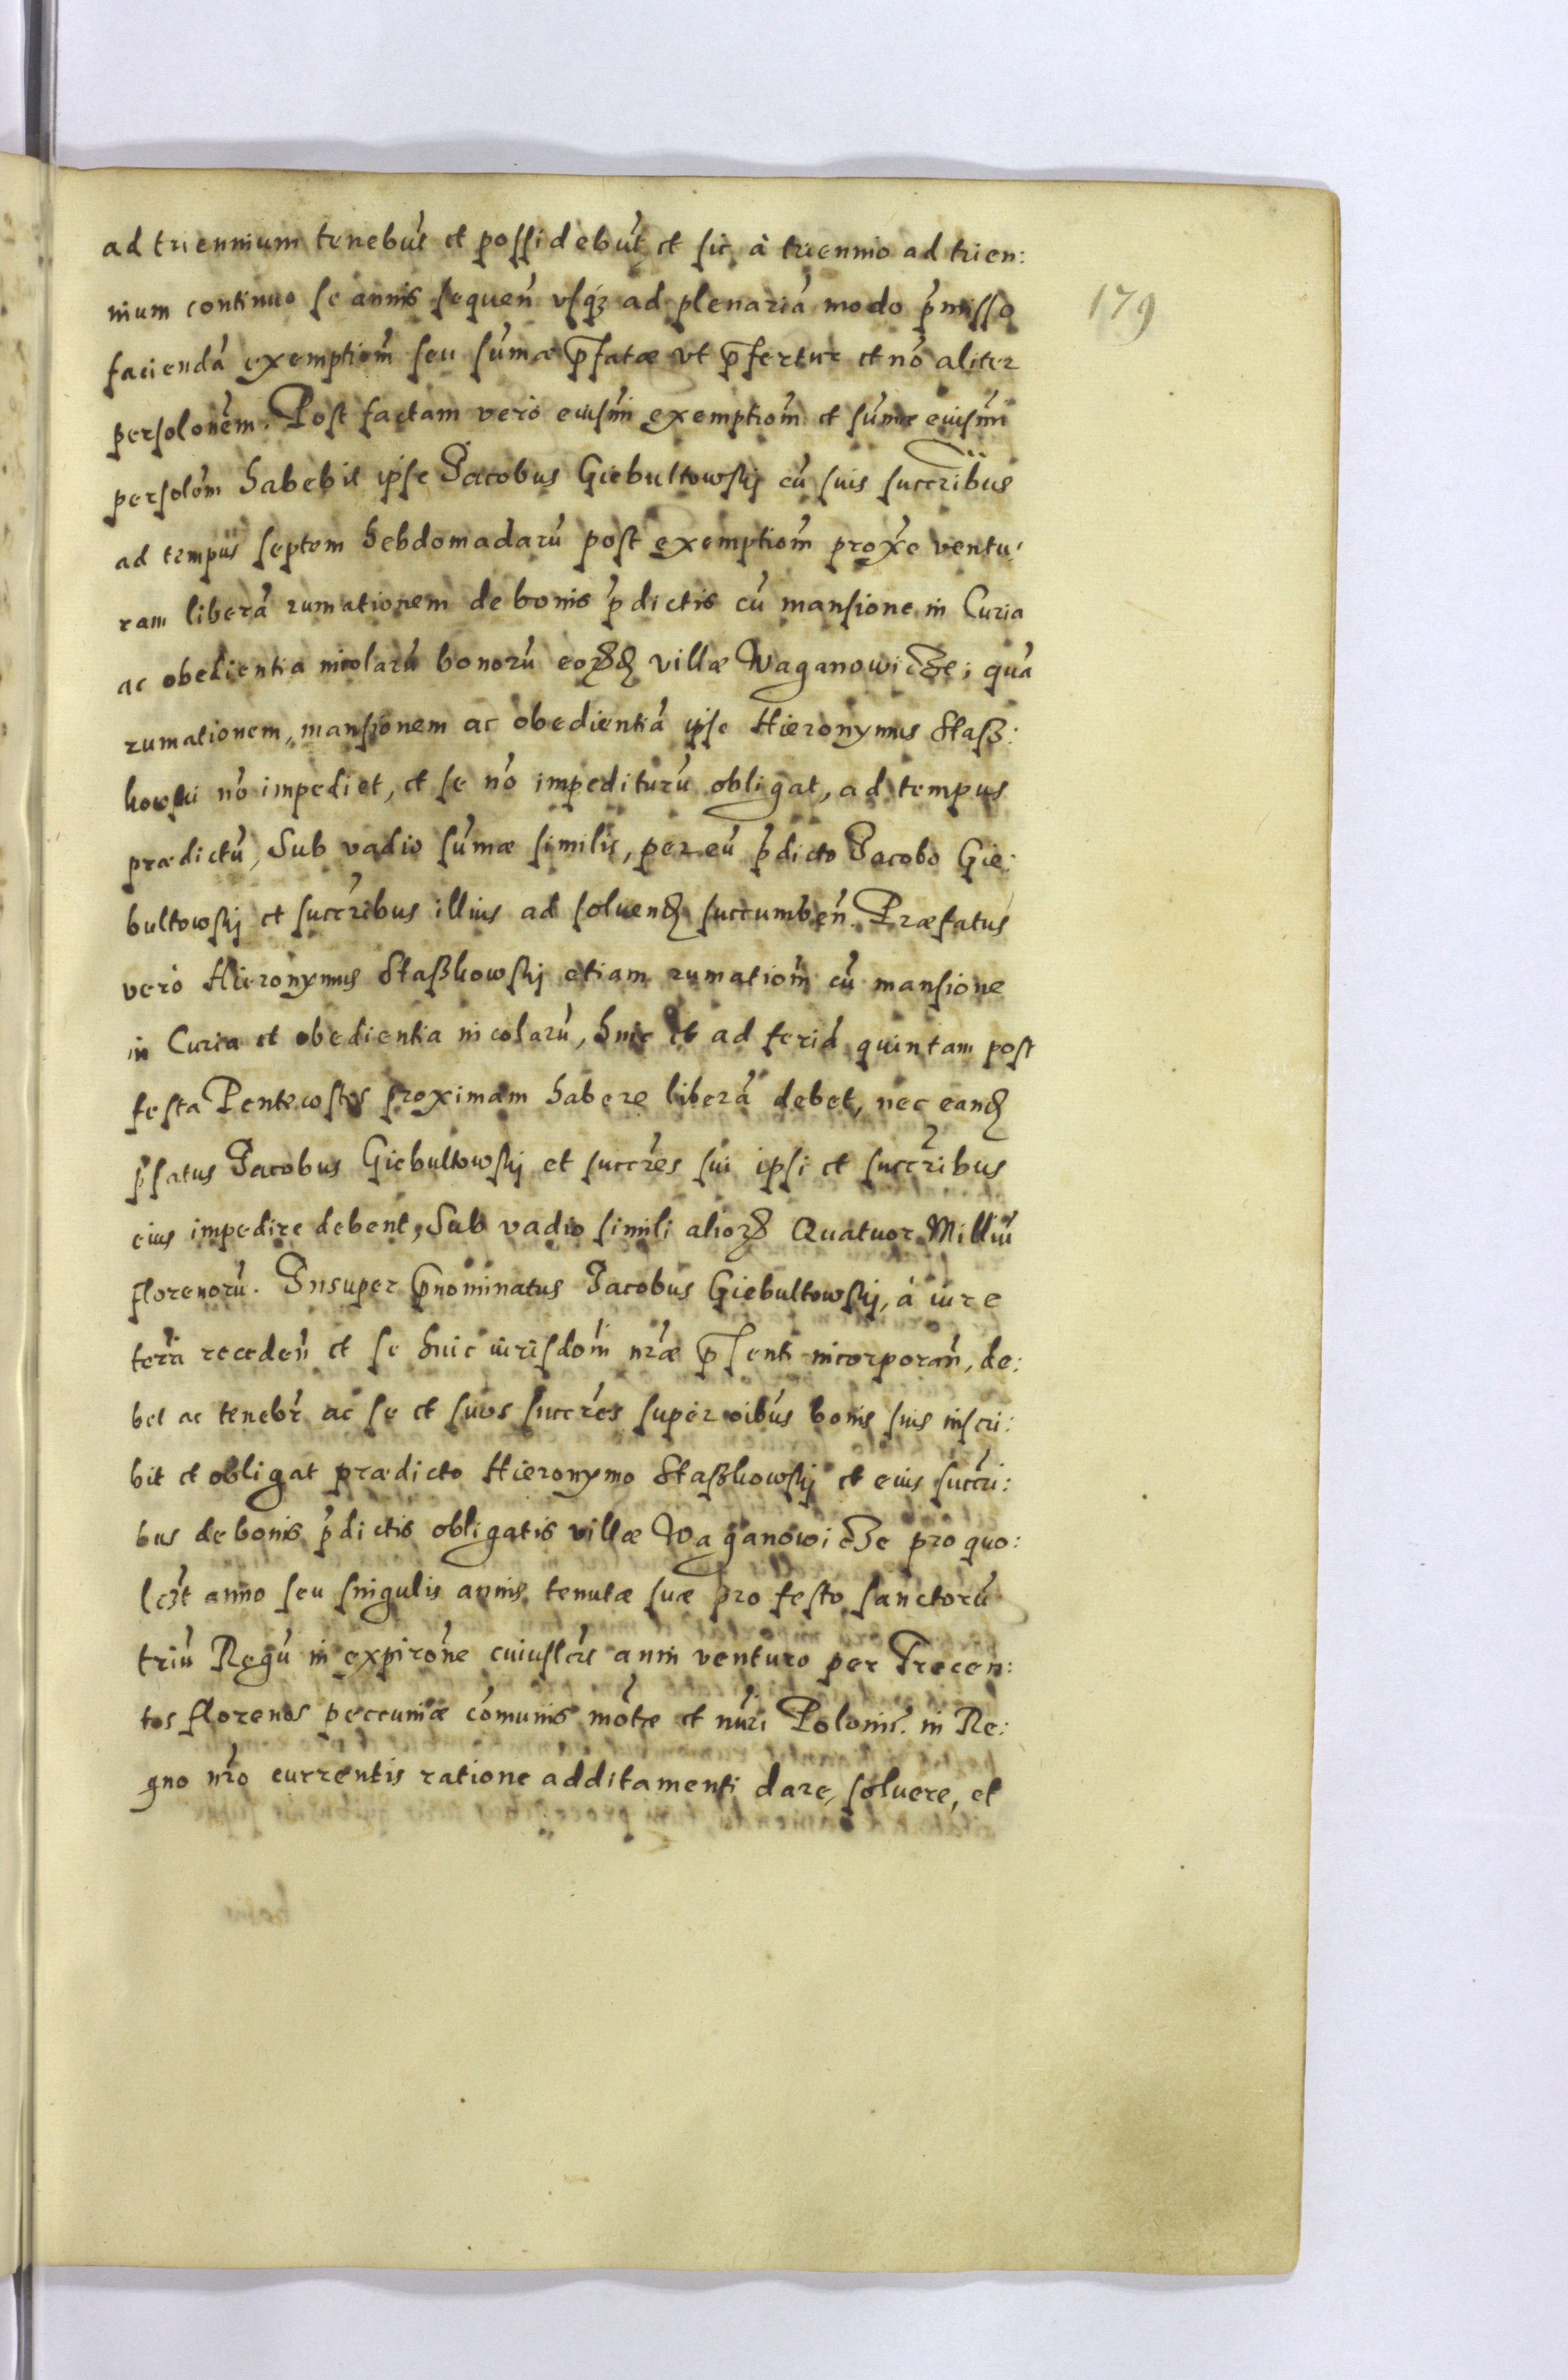 ad triennium tenebūt et possidebūt et sic à triennio ad trien:
nium continuo se annis sequen̄ vsq3 ad plenariā modo p̄misso
179
faciendā exemptiōm seu sūmæ p̄fatæ vt p̄fertur et nō aliter
persolōnem. Post factam verò eiusm̄i exemptiōm et sūme eiusm̄i
persolōm habebit ipse Jacobus Giebultowskj cū suis succr̄ibus
ad tempus septem hebdomadarū post exemptiōm prox̄e ventu:
ram liberā rumationem de bonis p̄dictis cū mansione in Curia
ac obedientia incolarū bonorū eord̄ villæ Waganowicze; quā
rumationem, mansionem ac obedientiā ipse Hieronymus Staß:
kowski nō impediet, et se nō impediturū obligat, ad tempus
prædictū, Sub vadio sūmæ similis, per eū p̄dicto Jacobo Gie:
bultowskj et succr̄ibus illius ad soluend̄ succumben̄. Præfatus
verò Hieronymus Staßkowskj etiam rumatiōm cū mansione
in Curia et obedientia incolarū, hinc et ad feriā quintam post
festa Pentecostes proximam habere liberā debet, nec eand̄
p̄fatus Jacobus Giebultowskj et succr̄es sui ipsi et succr̄ibus
eius impedire debent, Sub vadio simili alior̄ Quatuor Milliū
florenorū. Insuper p̄nominatus Jacobus Giebultowskj, à iure
terr̄a receden̄ et se huic iurisdōni nr̄æ p̄senti incorporan̄, de:
bet ac tenebr̄ ac se et suos succr̄es super oībus bonis suis inscri:
bit et obligat prædicto Hieronymo Staßkowskj et eius succr̄i:
bus de bonis p̄dictis obligatis villæ Waganowicze pro quo:
lc3t anno seu singulis annis tenutæ suæ pro festo sanctorū
triū Regū in expirōne cuiuslc3t anni venturo per Trecen:
tos florenos peccuniæ cōmunis mōtæ et nūri Polonis. in Re:
gno nr̄o currentis ratione additamenti dare, soluere, et